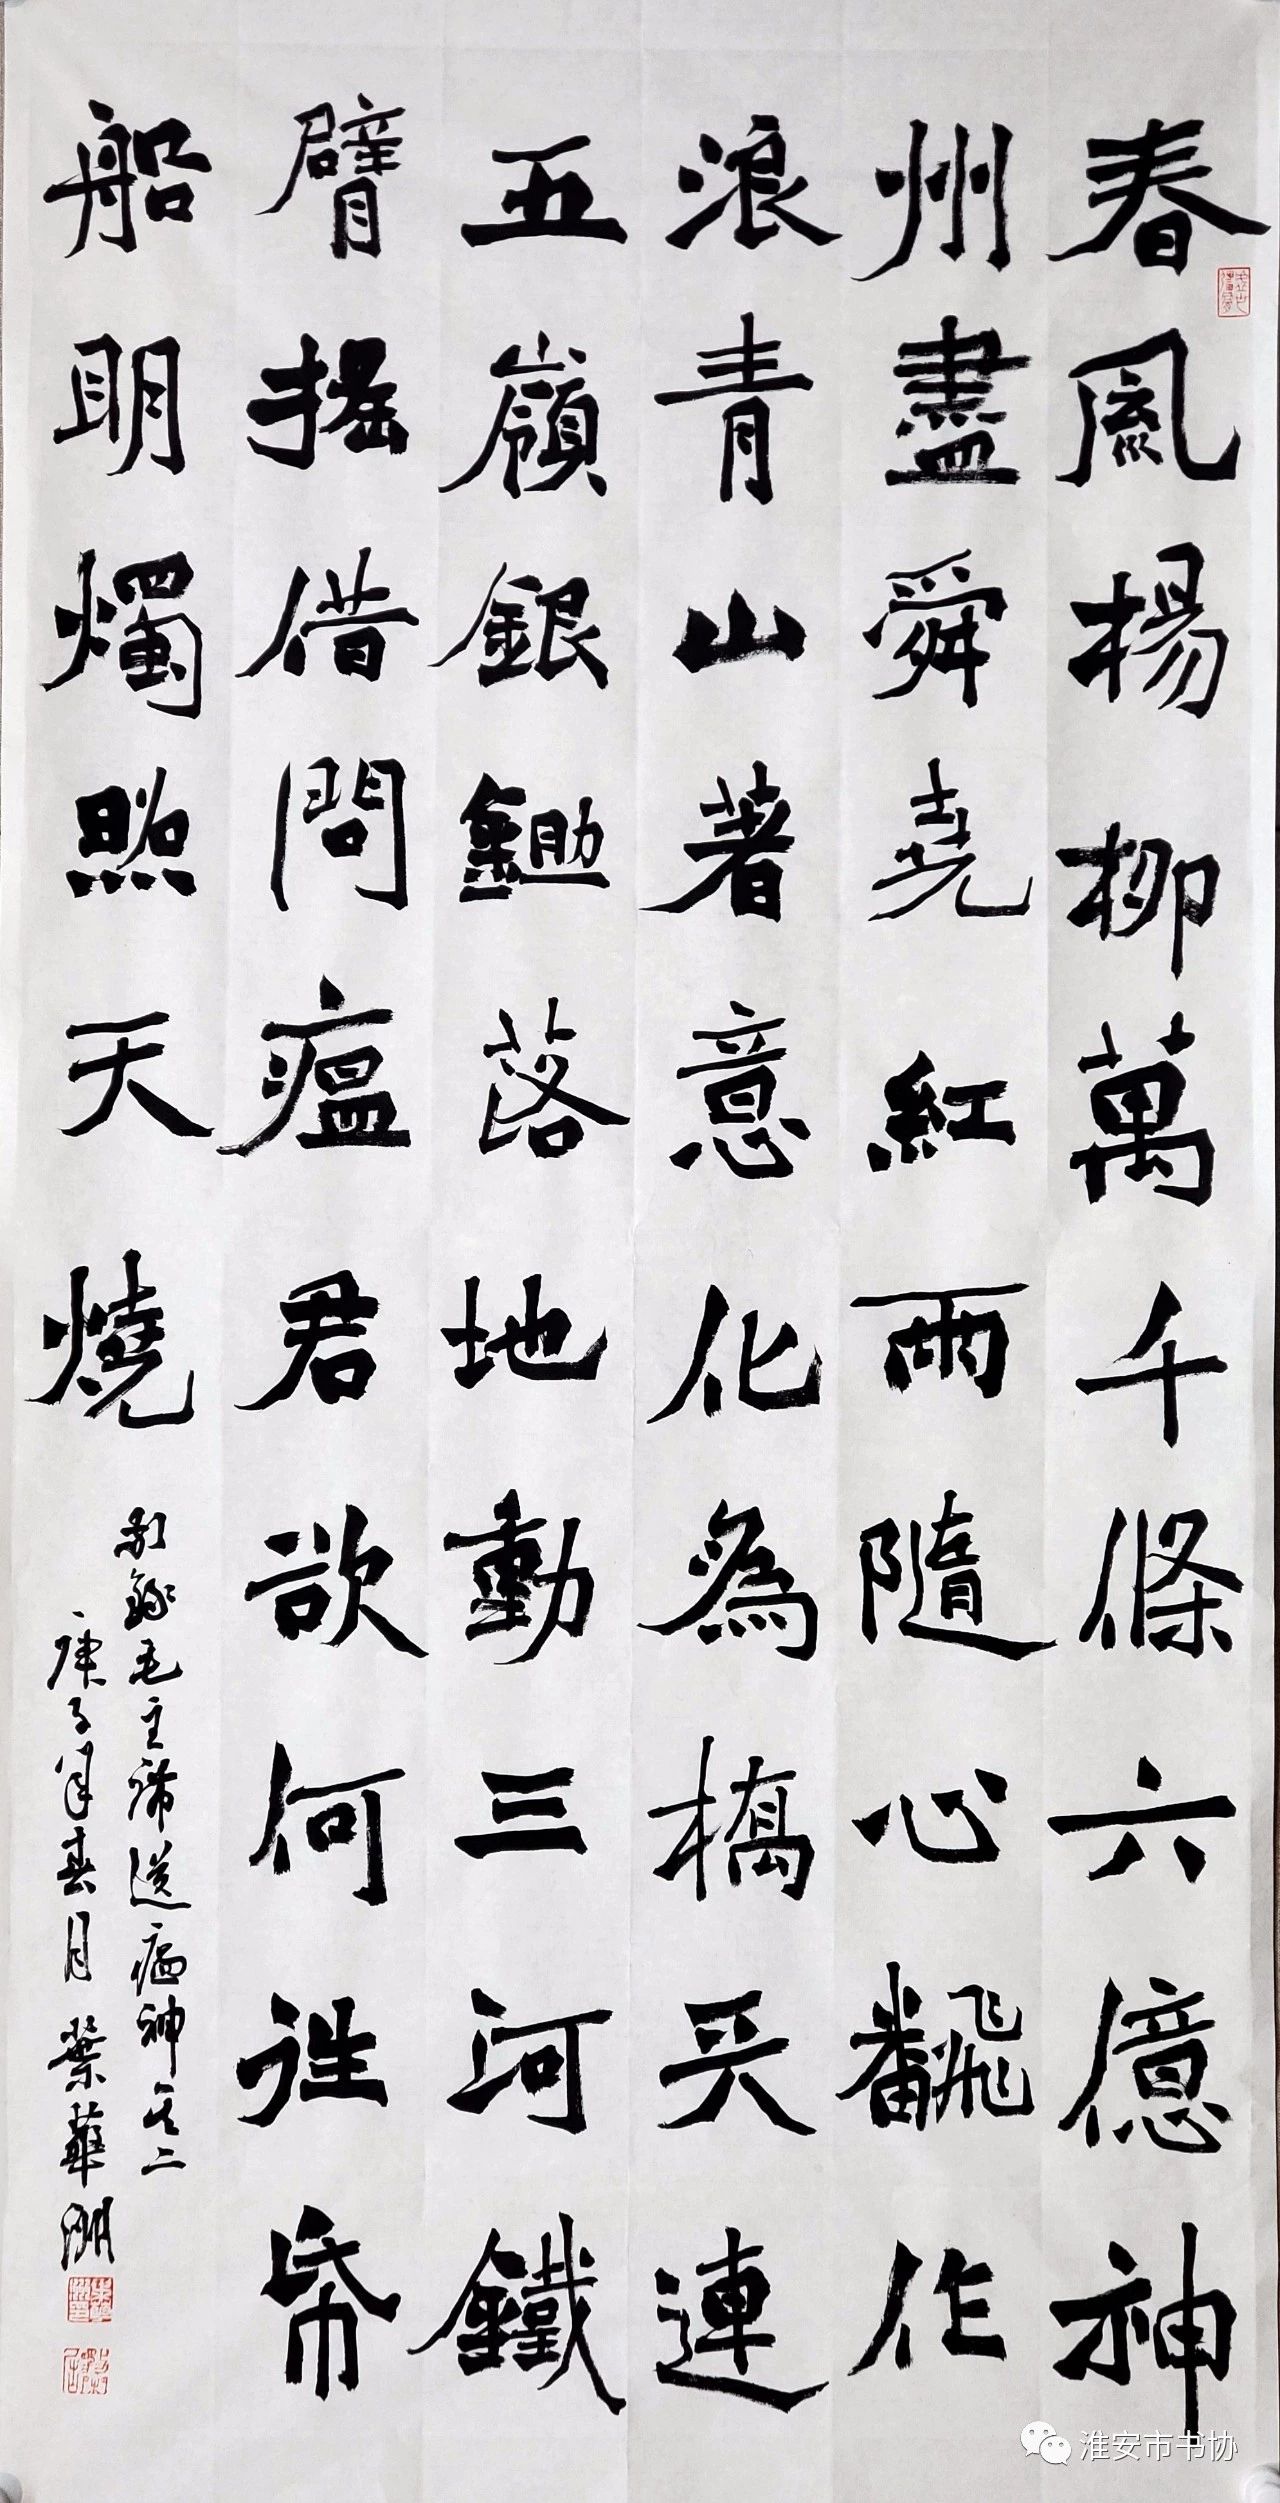 春風楊柳萬千條六億神
州盡舜堯紅雨隨心飜作
浪青山著意化爲橋天連
五嶺銀鋤落地動三河鐵
臂搖借問瘟君欲何往帋
船明燭照天燒
錄毛主席送瘟神其二
庚子年春月 葉華
淮安市书协